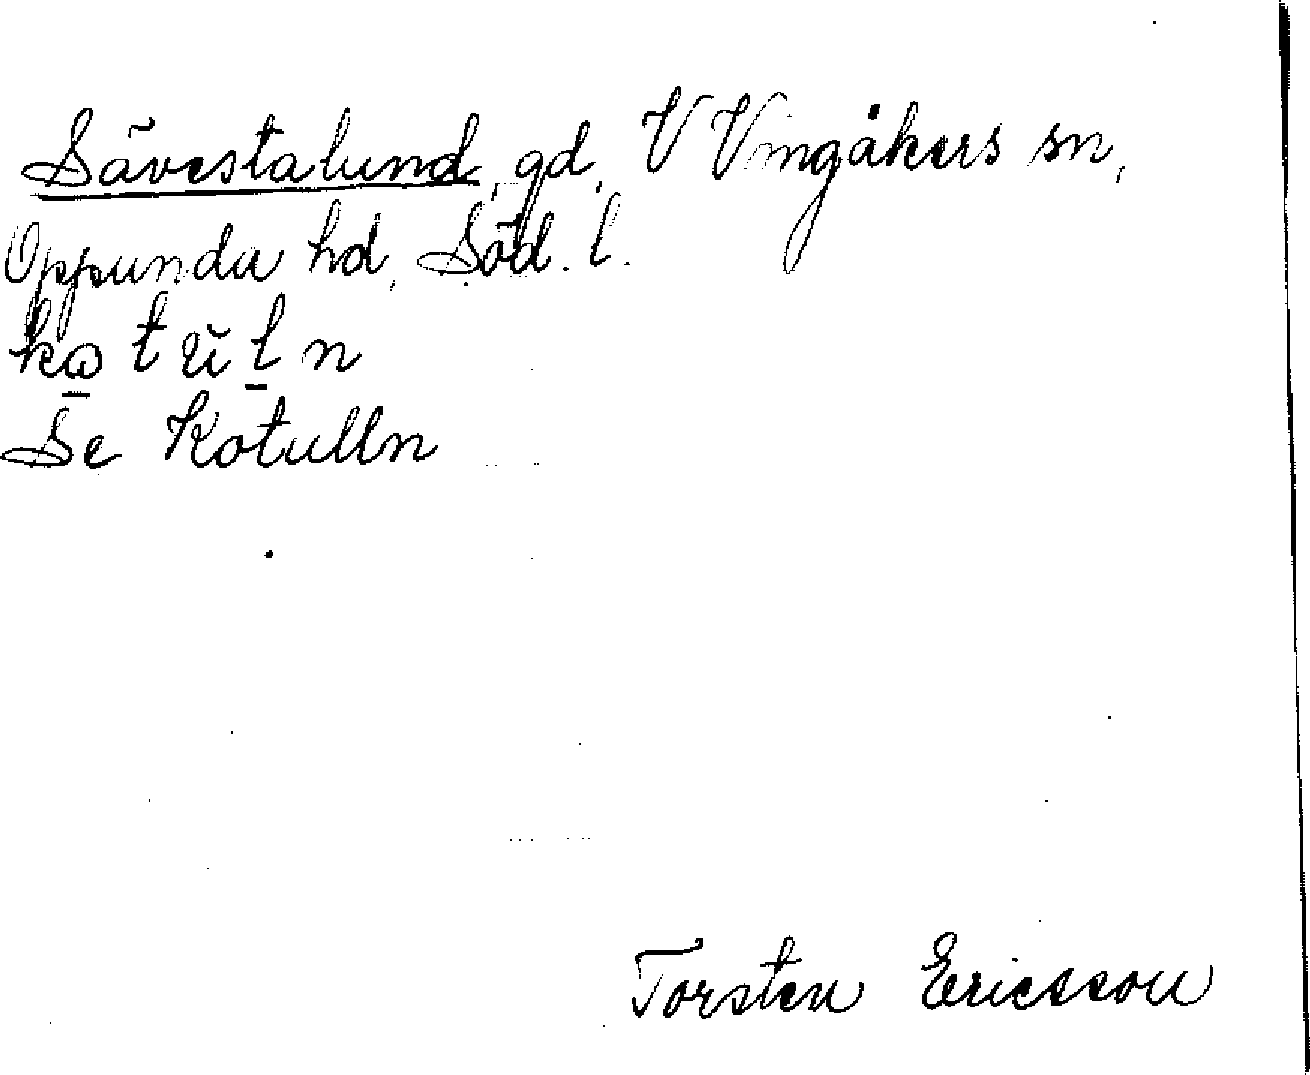 Sävestalund, gd, V Vingåkers sn,
Oppunda hd, Söd. l.
kɷ̠ t ŭ l̠ n
Se Kotulln
Torsten Ericsson